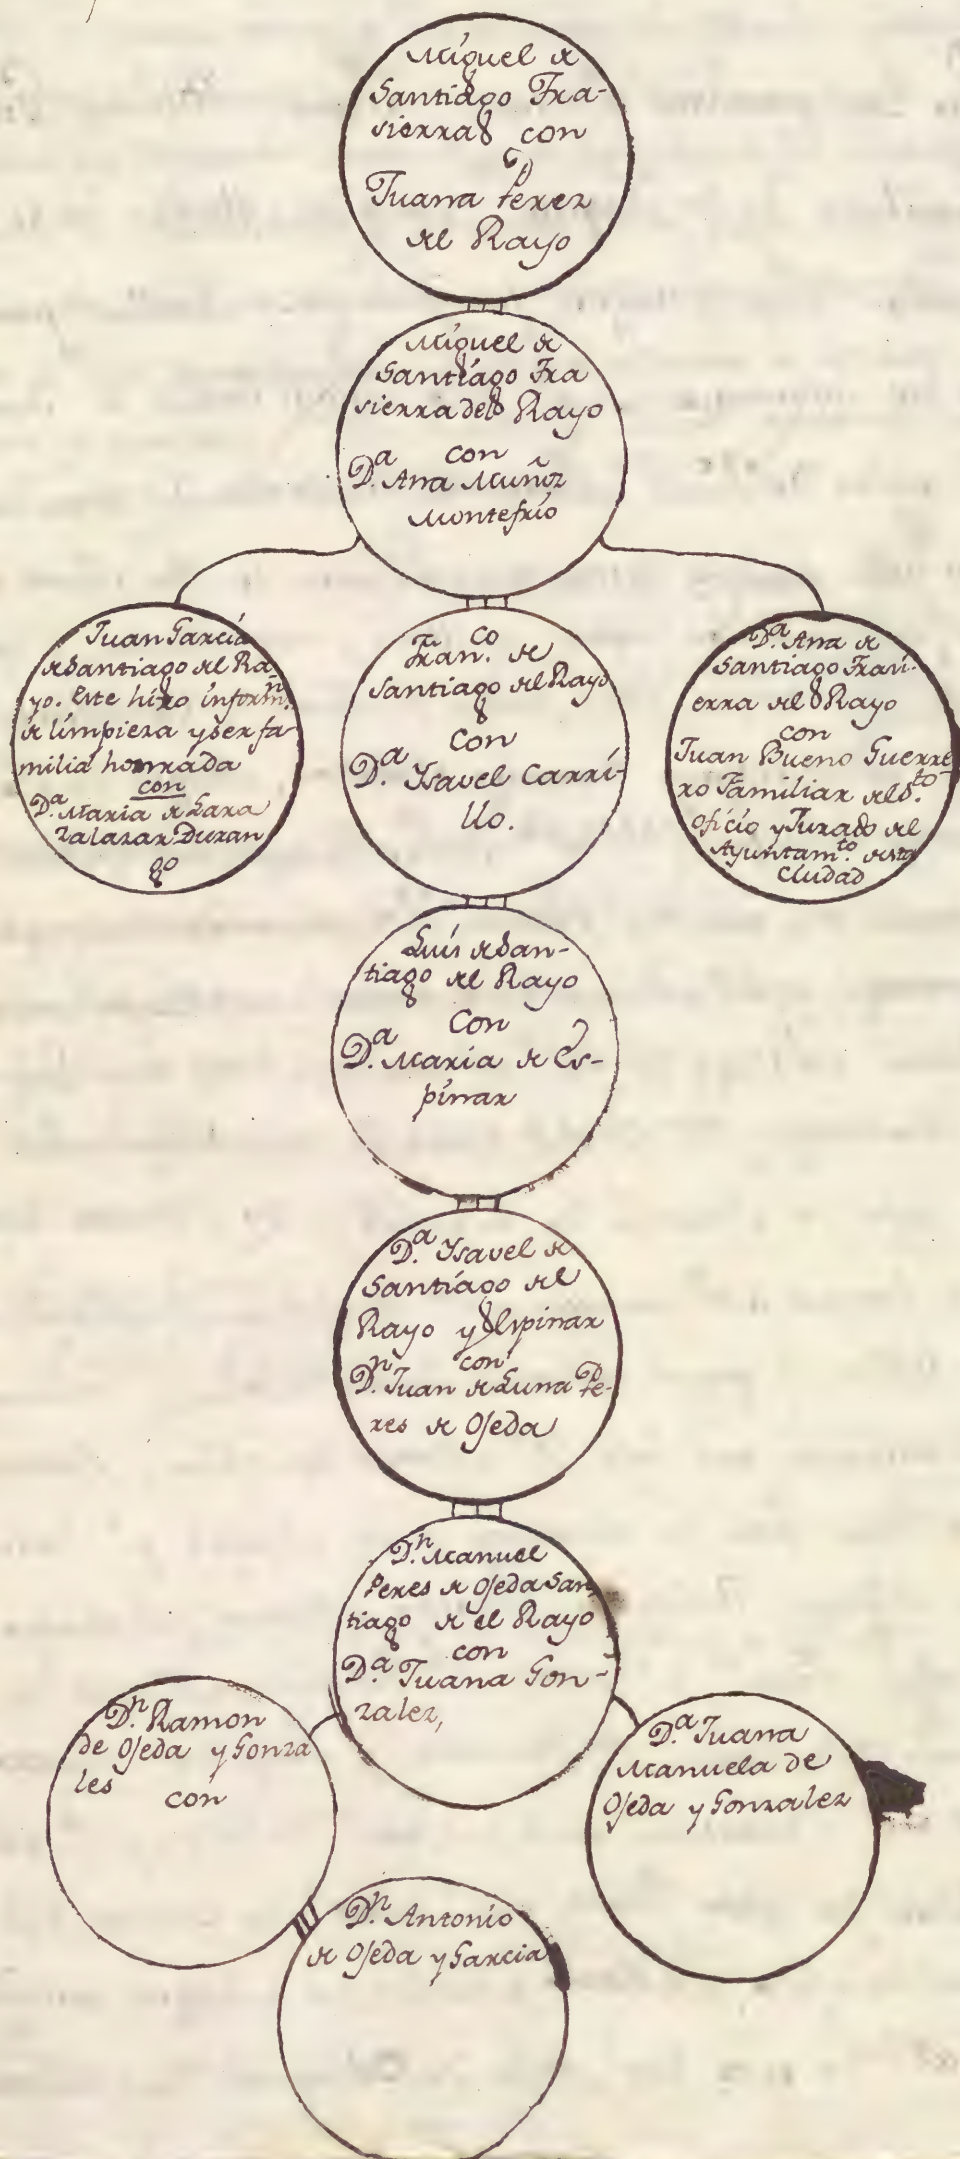 Miguel de
Santiago Fra-
sierra con
Juana Perez
del Rayo
Miguel de
Santiago Fra
sierra del Rayo
con
D.ª Ana Muñoz
Montefrio
Juan Garcia
de Santiago del Ra-
yo. Este hizo inform.n
de limpieza y ser fa-
milia honrrada
con
D.ª Maria de Lara
Zalazar Duran
go
Fran.co de
Santiago del Rayo
con
D.ª Ysavel Carri-
llo.
D.ª Ana de
Santiago Frasi-
erra del Rayo
con
Juan Bueno Guerre-
ro Familiar del S.to
Oficio y Jurado del
Ayuntam.to desta
Ciudad
Luis de San-
tiago del Rayo
con
D.ª Maria de Es-
pinar
D.ª Ysavel de
Santiago del
Rayo y Espinar
con
D.n Juan de Luna Pe-
res de Ojeda
D.n Manuel
Peres de Ojeda San
tiago de el Rayo
con
D.ª Juana Gon-
zalez,
D.n Ramon
de Ojeda y Gonza
les con
D.ª Juana
Manuela de
Ojeda y Gonzalez
D.n Antonio
de Ojeda y Garcia